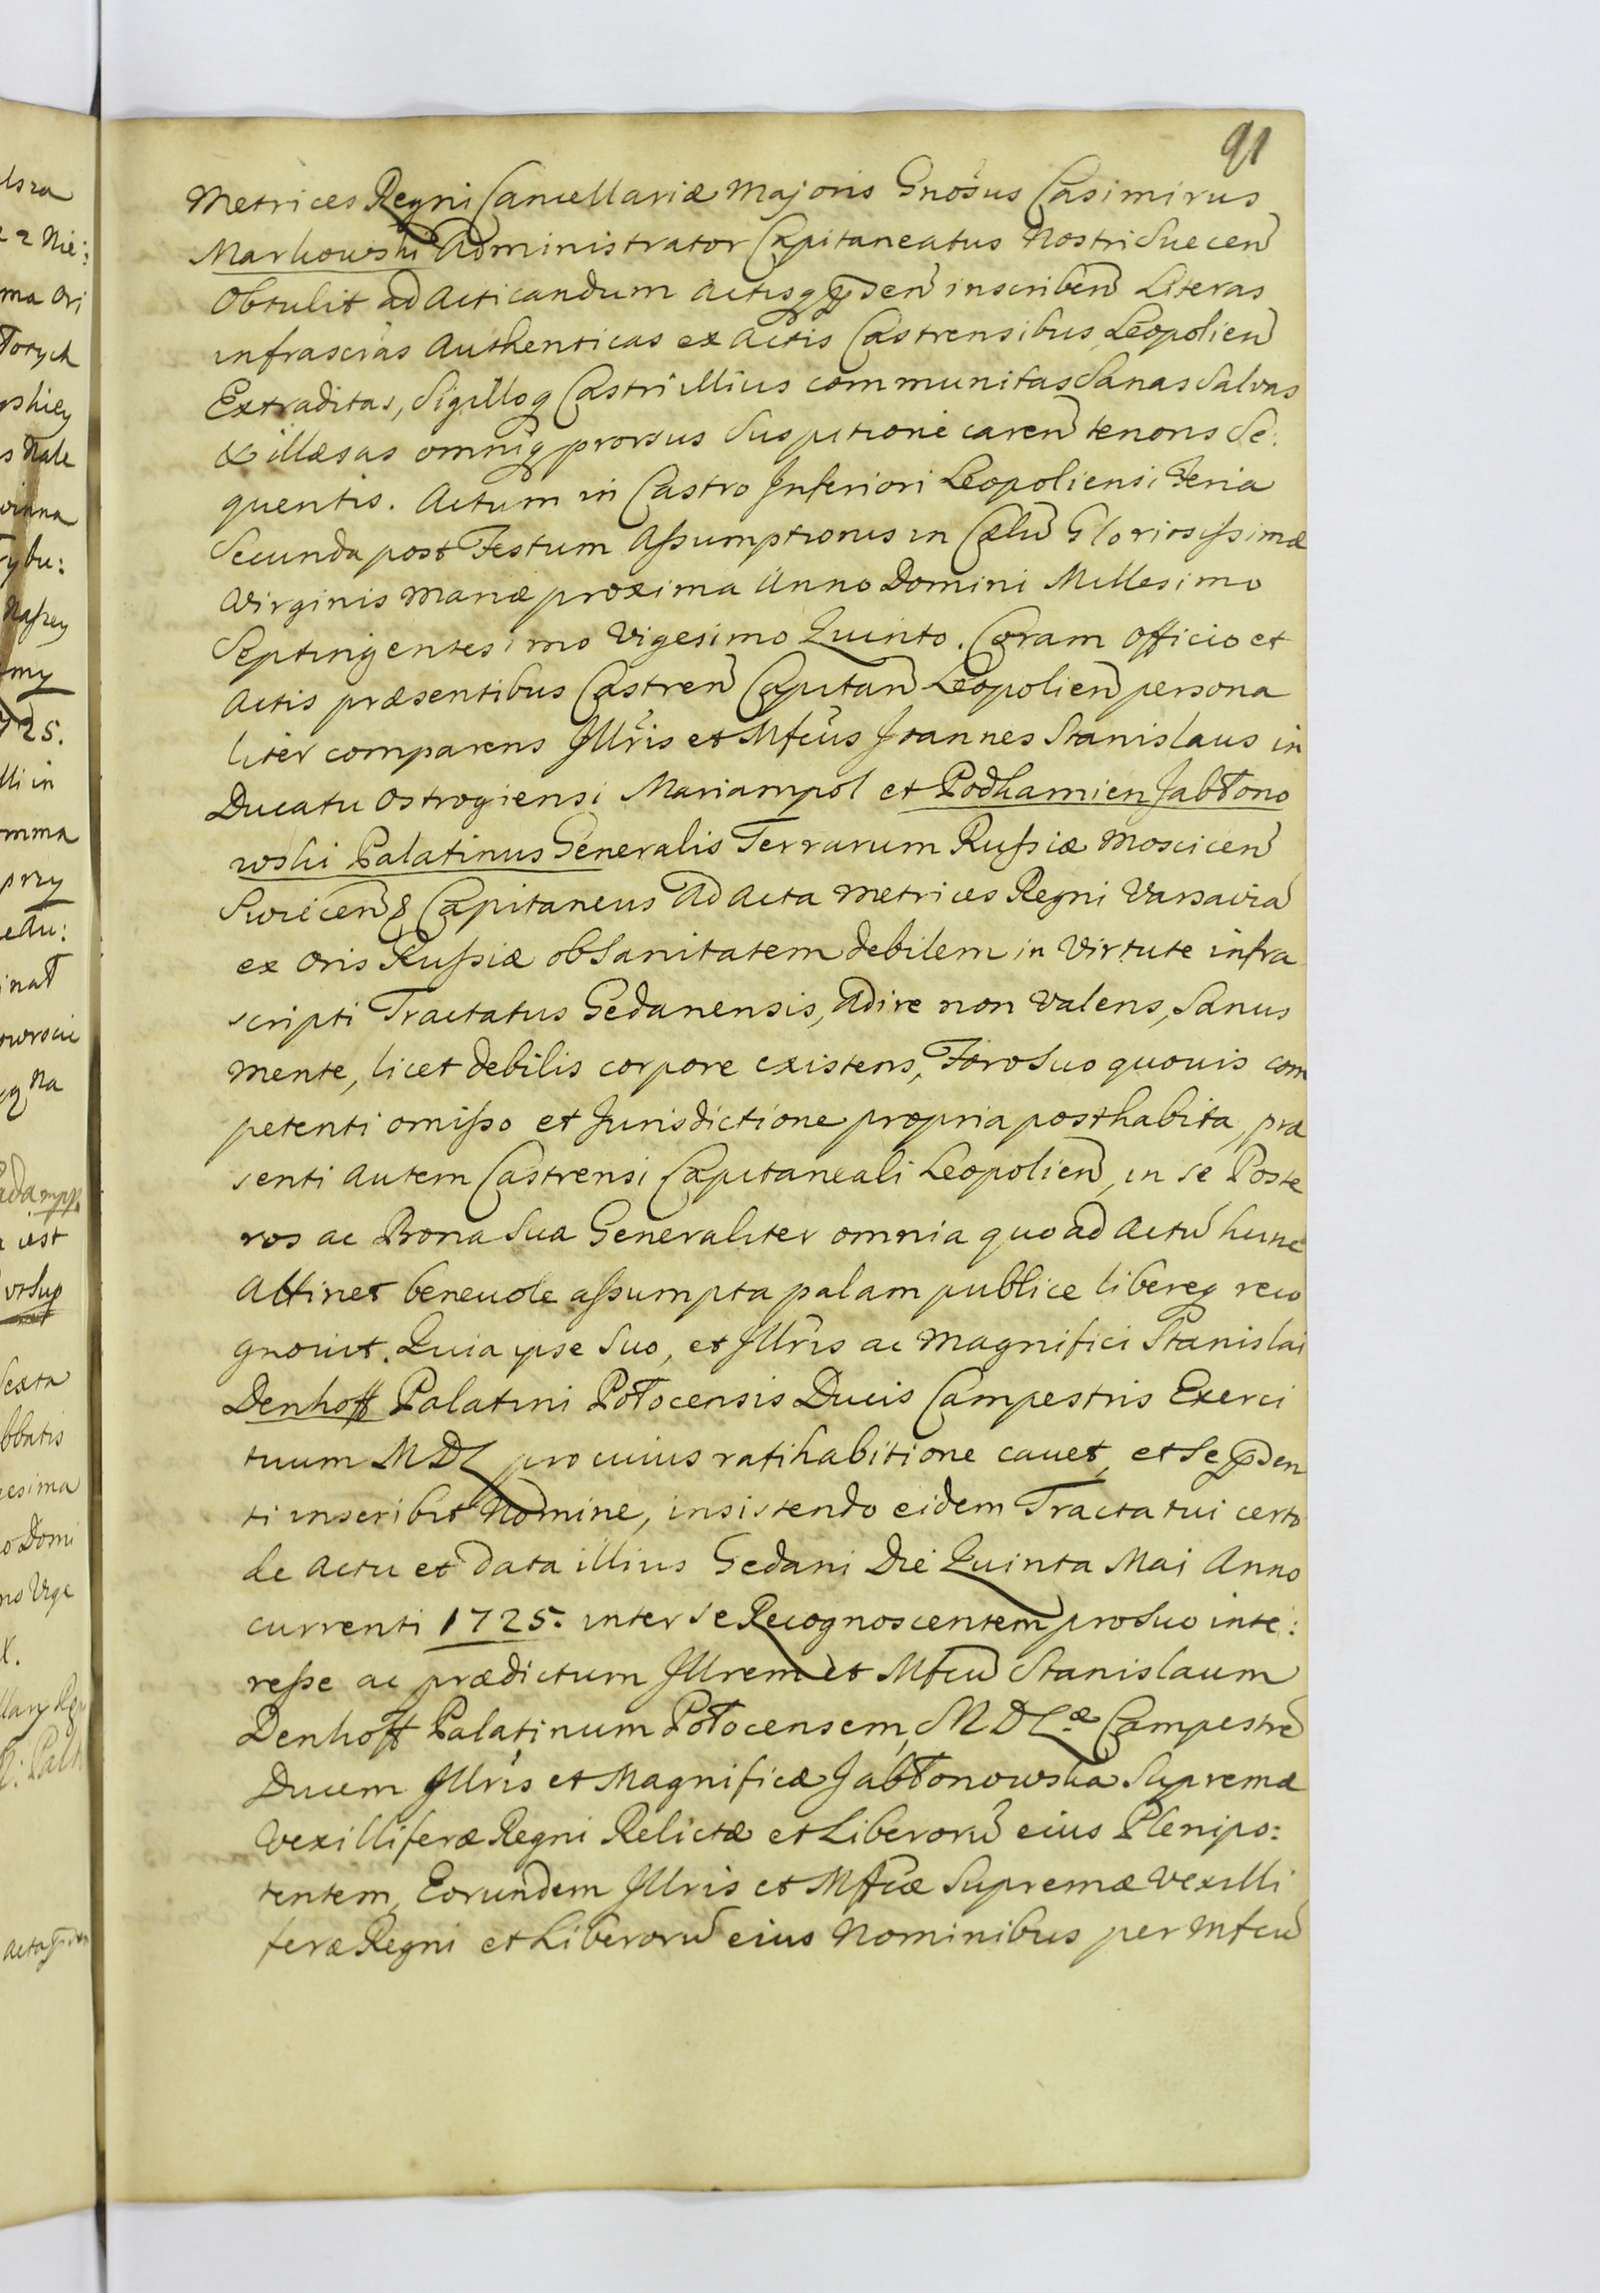 91
Metrices Regni Cancellariæ Majoris Gnosus Casimirus
Markowski Administrator Capitaneatus Nostri Suecen
Obtulit ad Acticandum Actisq pnden inscriben Literas
infrascias Authenticas ex Actis Castrensibus Leopolien
Extraditas, Sigilloq Castri illius communitas Sanas Salvas
& illæsas omniq prorsus Suspitione caren tenoris Se:
quentis. Actum in Castro Inferiori Leopoliensi Feria
Secunda post Festum Assumptionis in Cælu Gloriosissimæ
Virginis Mariæ proxima Anno Domini Millesimo
Septingentesimo Vigesimo Quinto. Coram Officio et
Actis præsentibus Castren Capitan Leopolien persona
liter comparens Illris et Mfcus Joannes Stanislaus in
Ducatu Ostrogiensi Mariampol et Podkamien Jabłono
wski Palatinus Generalis Terrarum Russiæ Moscicen
Swiecen & Capitaneus Ad Acta Metrices Regni Varsavia
ex Oris Russiæ ob Sanitatem debilem in Virtute infra
scripti Tractatus Gedanensis, Adire non Valens, Sanus
Mente, licet debilis corpore existens, Foro Suo quovis com
petenti omisso et Jurisdictione propria posthabita, præ
senti Autem Castrensi Capitaneali Leopolien, in se Poste
ros ac Bona Sua Generaliter omnia quo ad Actu hunc
Attinet benevole assumpta palam publice libereq reco
gnovit. Quia ipse Suo, et Illris ac Magnifici Stanislai
Denhoff Palatini Połocensis Ducis Campestris Exerci
tuum MDL pro cuius ratihabitione cavet, et Se pnden
ti inscribit Nomine, insistendo eidem Tractatui certo
de Actu et data illius Gedani Die Quinta Mai Anno
currenti 1725. inter se Recognoscentem pro Suo inte:
resse ac prædictum Illrem et Mfcu Stanislaum
Denhoff Palatinum Połocensem, MDLæ Campestre
Ducem Illris et Magnificæ Jabłonowska Supremæ
Vexilliferæ Regni Relictæ et Liberoru eius Plenipo:
tentem, Eorundem Illris et Mfcæ Supremæ Vexilli
feræ Regni et Liberoru eius Nominibus per Mfcu